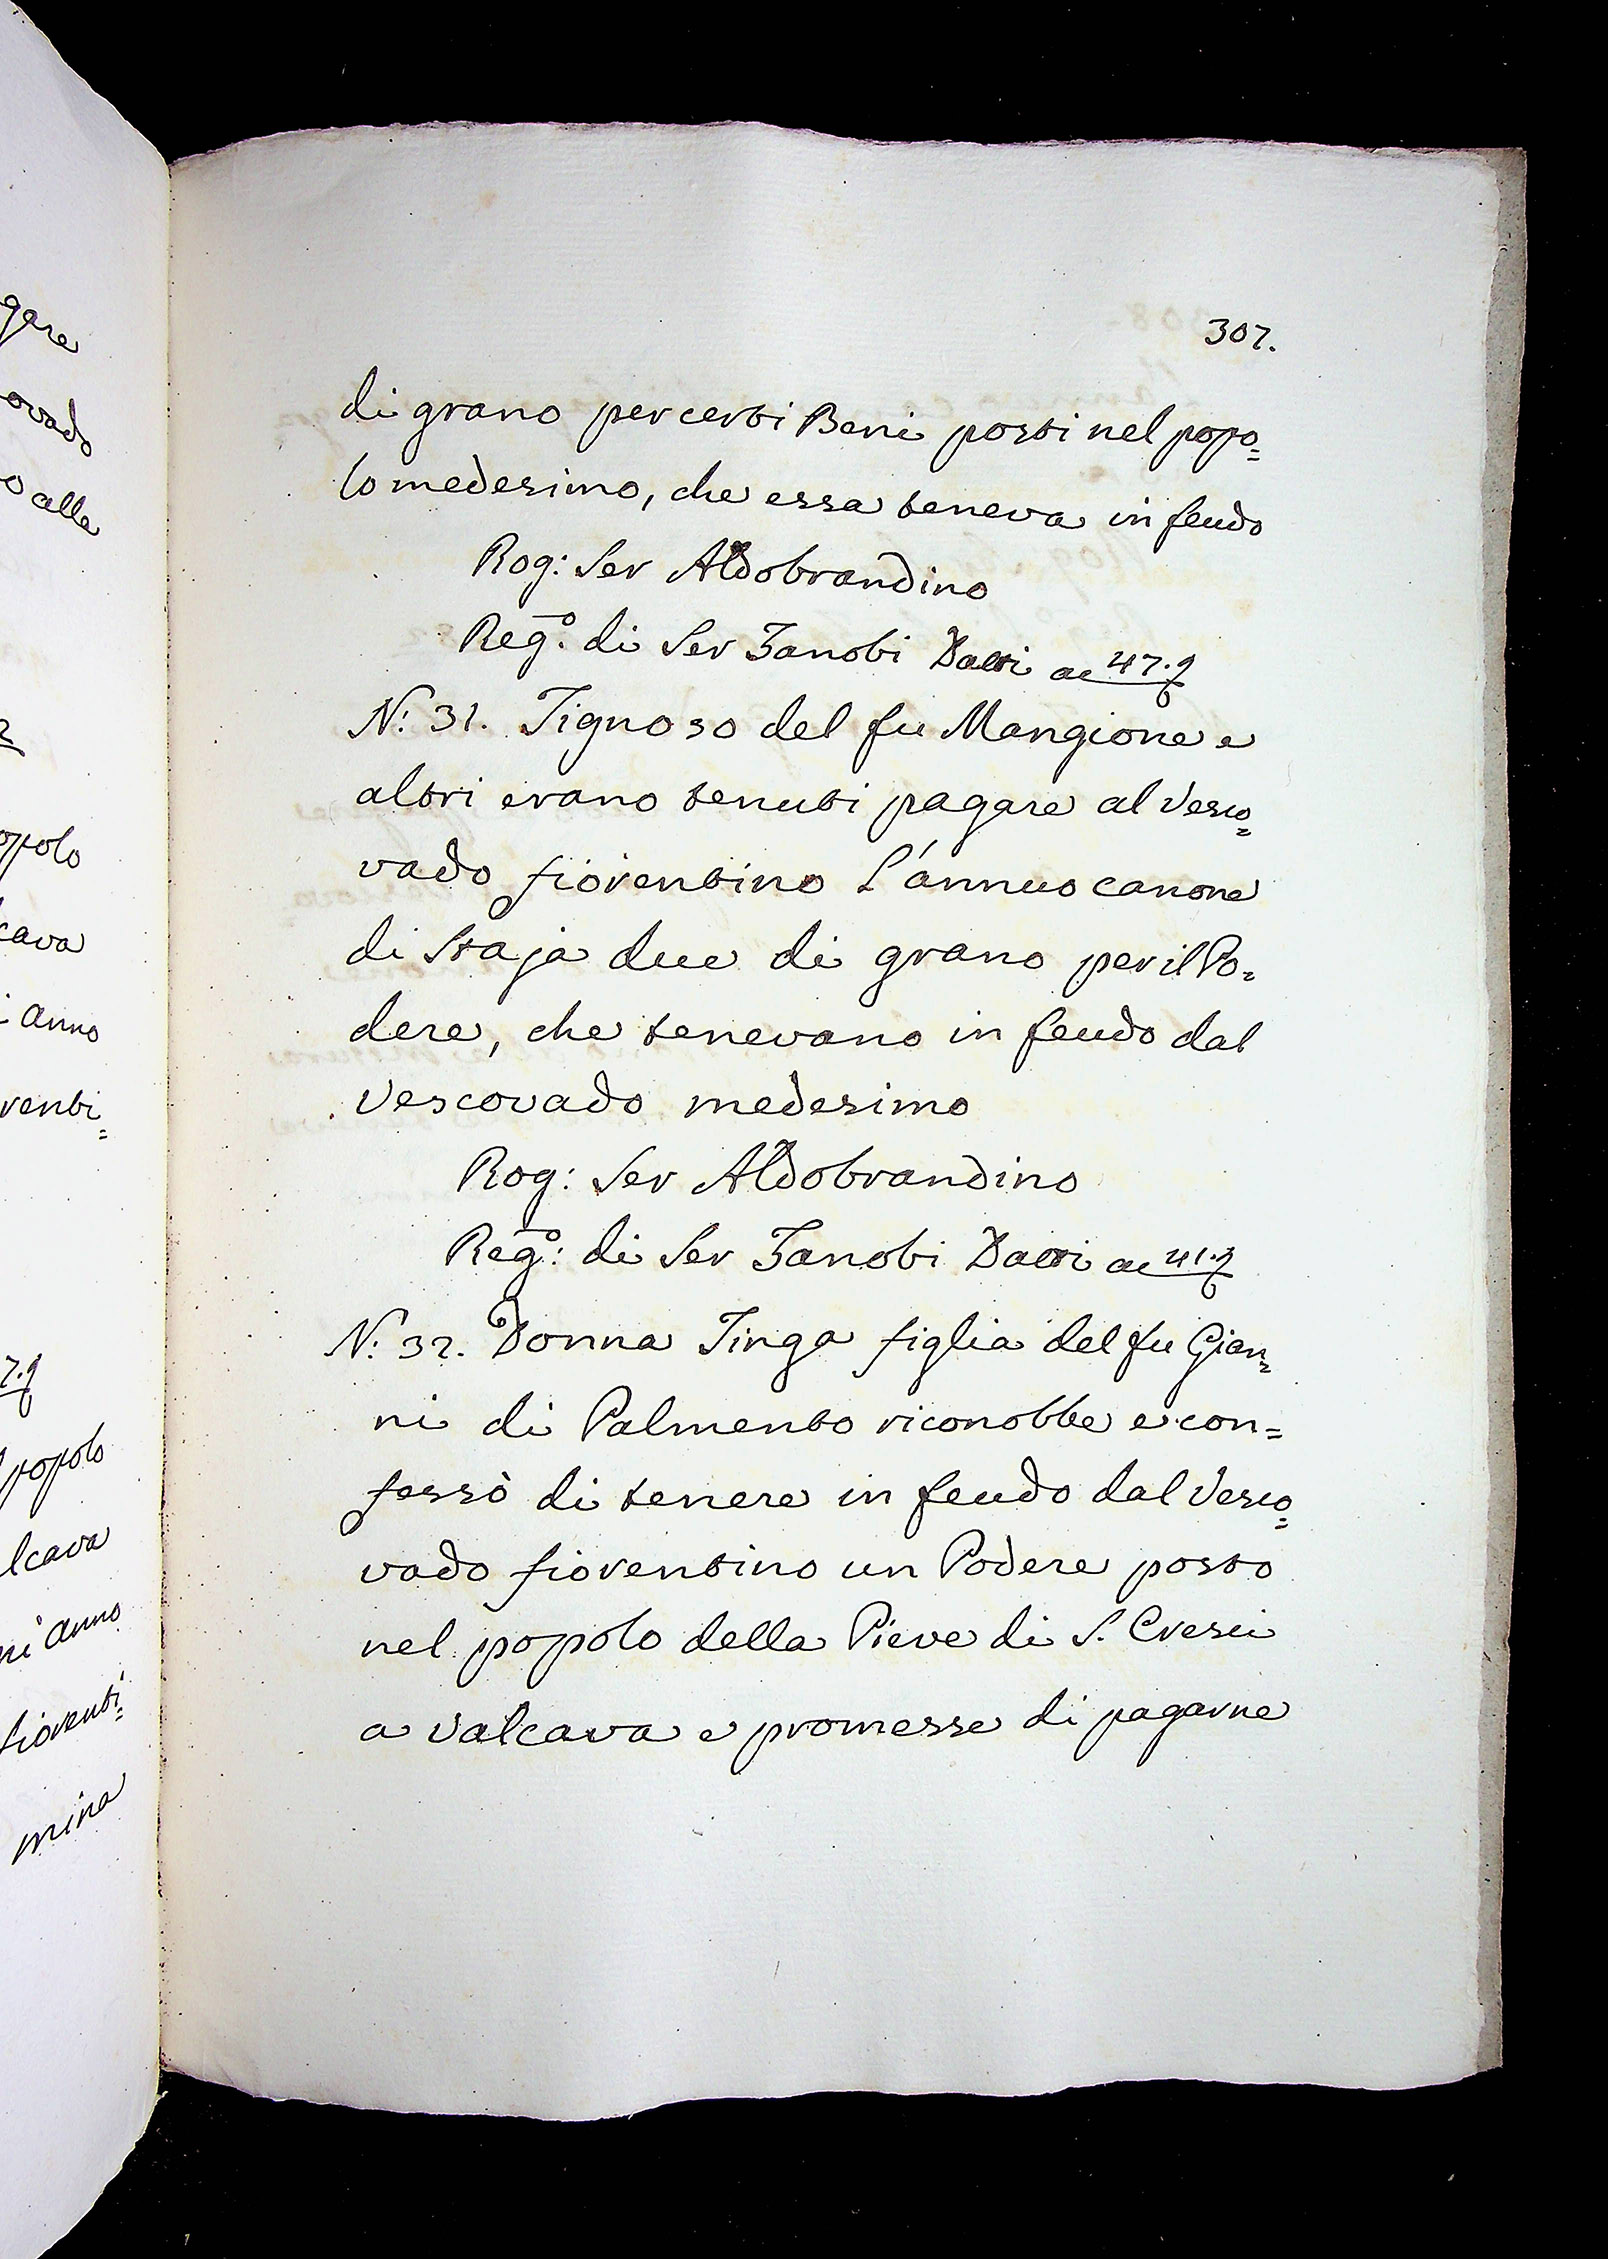 gare
ovado
o alle
2
opolo
cava
i anno
renti=
7.9
popolo
lcava
ni anno
fiorenti=
mina
307.
di grano per certi Beni posti nel popo=
lo medesimo, che essa teneva in feudo
Rog: Ser Aldobrandino
Reg.º di Ser Zanobi ac 47.
N.º 31. Tignoso del fu Mangione e
altri erano tenuti pagare al Vesco=
vado fiorentino l'annuo canone
di Staja due di grano per il Po=
dere, che tenevano in feudo dal
Vescovado medesimo
Rog: Ser Aldobrandino
Reg.º: di Ser Zanobi ac 41.
N.º 32. Donna Tinga figlia del fu Gian=
ni di Palmento riconobbe e con=
fessò di tenere in feudo dal Vesco=
vado fiorentino un Podere posto
nel popolo della Pieve di S. Cresci
a Valcava e promesse di pagarne